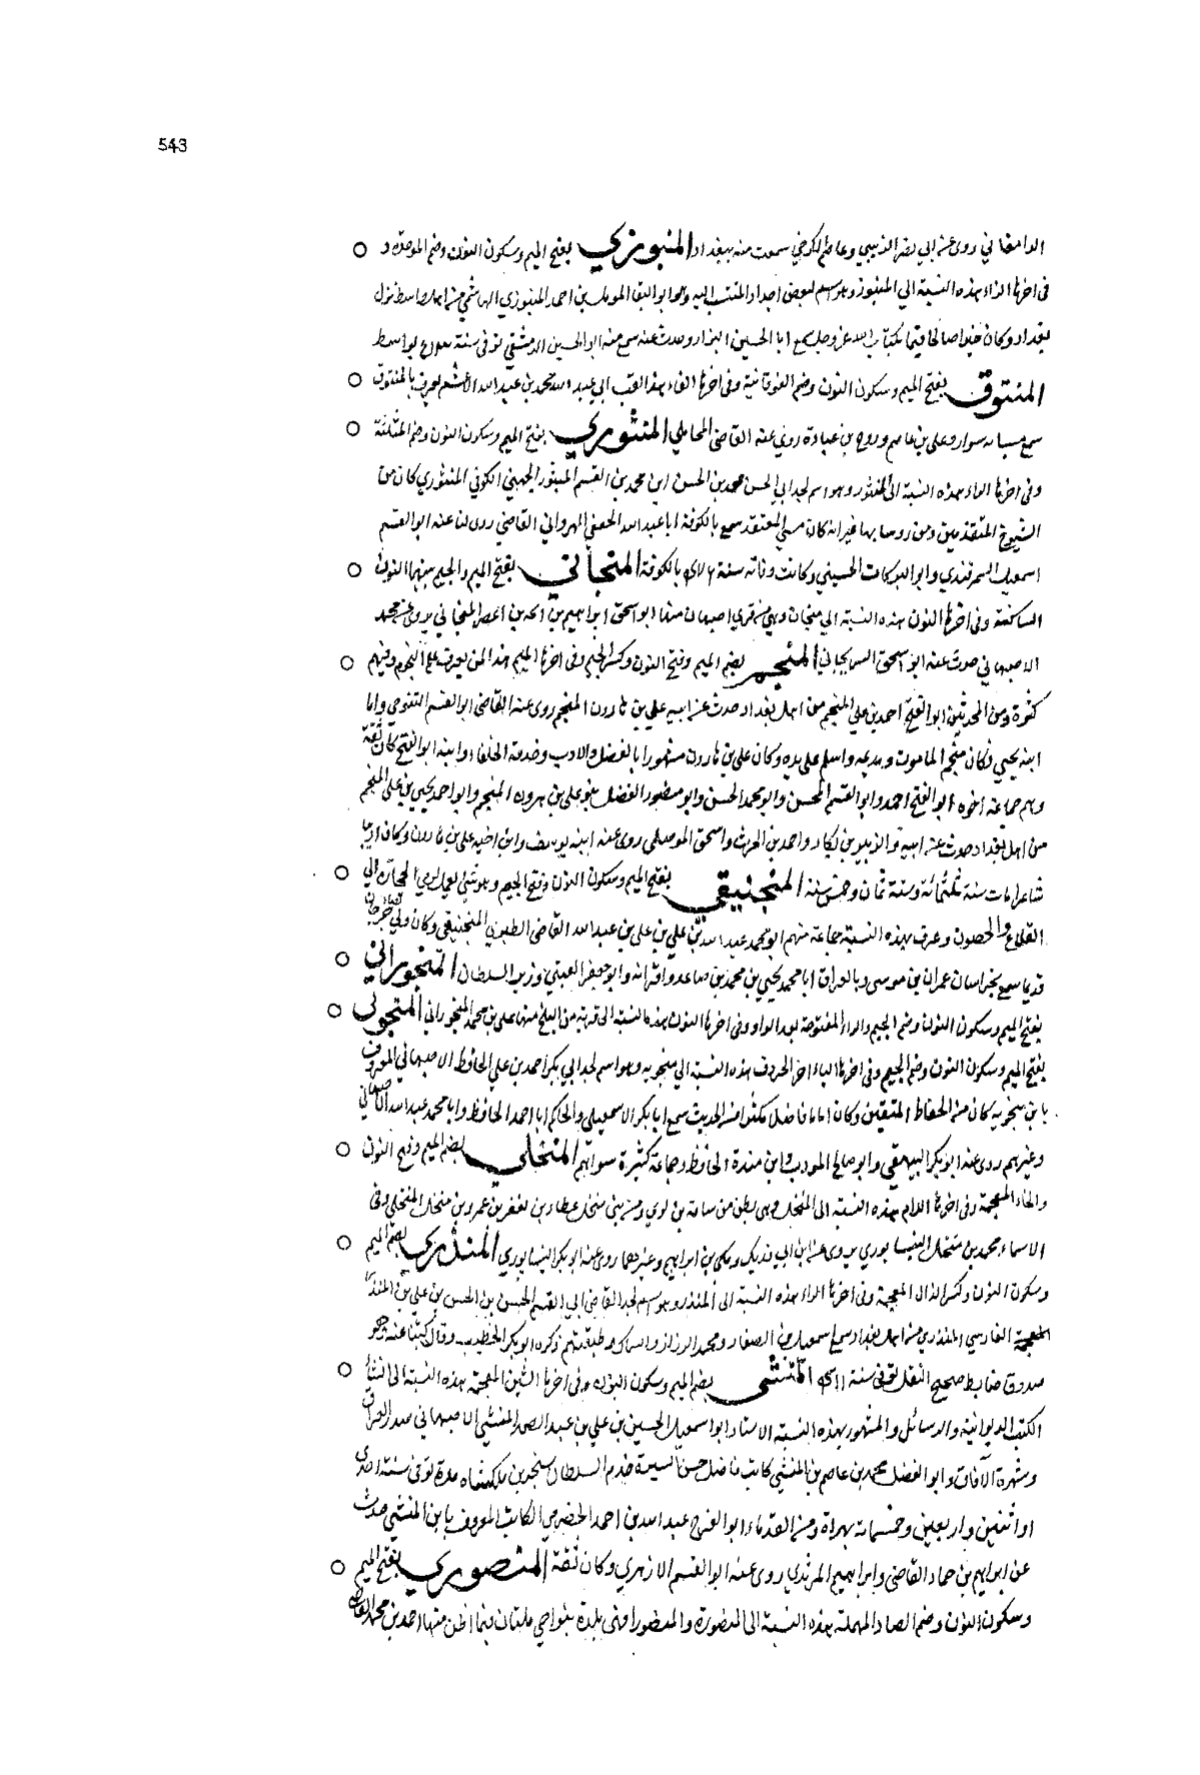 543
الدامغاني روى عن ابي نصر الزينبي وعاصم الكرخي سمعت منه ببغداد المنبوزي بفتح الميم وسكون النون وضم الموحدة و
في اخرها الزاء هذه النسبة الي المنبوز وهو اسم لبعض اجداد المنتسب اليه وهو ابو البقا المومل بن احمد المنبوزي الهاشمي من اهل واسط نزل
بغداد وكان خيرا صالحا قيما بكتاب الله عز وجل سمع ابا الحسين البزار وحدث عنه سمع منه ابو الحسين الدمشقي توفي سنة بواسط
المنتوف بفتح الميم وسكون النون وضم الفوقانية وفي اخرها الفاء هذا لقب ابي عبد الله محمد بن عبد الله يعرف بالمنتوف
سمع شبابه سوار وعلي بن عاصم وروح بن عبادة روى عنه القاضي المحاملي المنثوري بفتح الميم وسكون النون وضم المثلثة
وفي اخرها الراء هذه النسبة الى المنثور وهو اسم لجد ابي الحسن محمد بن الحسن ابن محمد بن القسم المنثور الجهني الكوفي المنثوري كان من
الشيوخ المتقدمين ومن روسا بها غير انه كان سيئ المعتقد سمع بالكوفة ابا عبد الله الجعفي الهرواني القاضي روى لنا عنه ابو القسم
اسمعيل السمرقندي وابو البركات الحسيني وكانت وفاته سنة بالكوفة المنجاني بفتح الميم والجيم بينهما النون
الساكنة وفي اخرها النون هذه النسبة الي منجان وهي من قري اصبهان منها ابو اسحق ابراهيم بن احمد بن اعصر المنجاني يروي عن محمد
الاصبهاني حدث عنه ابو اسحق السيرجاني المنجم بضم الميم وفتح النون وكسر الجيم وفي اخرها الميم هذا لمن يعرف علم النجوم وفيهم
كثرة ومن المحدثين ابو الفتح احمد بن علي المنجم من اهل بغداد حدث عن ابيه علي بن هارون المنجم روى عنه القاضي ابو القسم التنوخي واما
ابنه يحيى فكان منجم المامون ونديمه واسلم على يده وكان علي بن هارون مشهورا بالفضل والادب وخدمة الخلفاء وابنه ابو الفتح كان ثقة
وهم جماعة اخوه ابو الفتح احمد وابو القسم المحسن وابو محمد الحسن وابو منصور الفضل بنو علي بن هرون المنجم وابو احمد يحيى بن علي المنجم
من اهل بغداد حدث عن ابيه والزبير بن بكار واحمد بن الحرث واسحق الموصلي روى عنه ابنه يوسف وابن اخيه علي بن هارون وكان اديبا
شاعرا مات سنة ثلثمائة وستة ثمان وخمسين سنة المنجنيقي بفتح الميم وسكون النون وفتح الجيم وهو شئ يعمل لرمي الحجارة الي
القلاع والحصون وعرف بهذه النسبة جماعة منهم ابو محمد عبد الله بن علي بن علي بن عبد الله القاضي الطبري المنجنيقي وكان ولي قضاء جرجان
قديما سمع بخراسان عمران بن موسى وبالعراق ابا محمد يحيى بن محمد بن صاعد واقرانه وابو جعفر العتبي وزير السلطان المنجوراني
بفتح الميم وسكون النون وضم الجيم والراء المفتوحة بعد الواو وفي اخرها النون هذه النسبة الى قرية من البلخ منها علي بن محمد المنجوراني المنجوي
بفتح الميم وسكون النون وضم الجيم وفي اخرها الياء اخر الحروف هذه النسبة الي منجويه وهو اسم لجد ابي بكر احمد بن علي الحافظ الاصبهاني المعروف
بابن منجويه كان من الحفاظ المتقين وكان اماما فاضلا مكثرا من الحديث سمع ابا بكر الاسمعيلي والحاكم ابا احمد الحافظ وابا محمد عبد الله الاصبهاني
وغيرهم روى عنه ابو بكر البيهقي وابو صالح المودب وابن مندة الحافظ وجماعة كثيرة سواهم المنخلي بضم الميم وفتح النون
والخاء المعجمة وفي اخرها اللام هذه النسبة الى المنخل وهي بطن من سامة بن لوي ومن بني منخل عطاء بن يعفر بن عمرو بن منخل المنخلي وفي
الاسماء محمد بن منخل النيسابوري يروى عن ابن ابي فديك ومكي بن ابراهيم وغيرهما روى عنه ابو بكر النيسابوري المنذري بضم الميم
وسكون النون وكسر الذال المعجمة وفي اخرها الراء هذه النسبة الى المنذر وهو اسم لجد القاضي ابي القسم الحسن بن الحسن بن علي بن المنذر
المعجمة الفارسي المنذري من اهل بغداد سمع اسمعيل الصفار ومحمد الرزاز والسماك وطبقتهم ذكره ابو بكر الخطيب وقال كتبنا عنه وهو
صدوق ضابط صحيح النقل توفي سنة المنشئ بضم الميم وسكون النون وفي اخرها الشين المعجمة هذه النسبة الى انشاء
الكتب الديوانية والرسائل والمشهور بهذه النسبة الاستاد ابو اسمعيل الحسين بن علي بن عبد الصمد المنشئ الاصبهاني صدر العراق
وشهرة الآفاق وابو الفضل محمد بن عاصم بن المنشي كاتب فاضل حسن السيرة خدم السلطان سنجر بن ملكشاه مدة توفي سنة احدى
او اثنين واربعين وخمسمائة بهراة ومن القدماء ابو الفرج عبد الله بن احمد الحضرمي الكاتب المعروف بابن المنشي حدث
عن ابراهيم بن حماد القاضي وابراهيم المرثدي روى عنه ابو القسم الازهري وكان ثقة المنصوري بفتح الميم
وسكون النون وضم الصاد المهملة هذه النسبة الى المنصورة والمنصور اما هي بلدة بنواحي ملتان فيما اظن منها احمد بن محمد القاضي